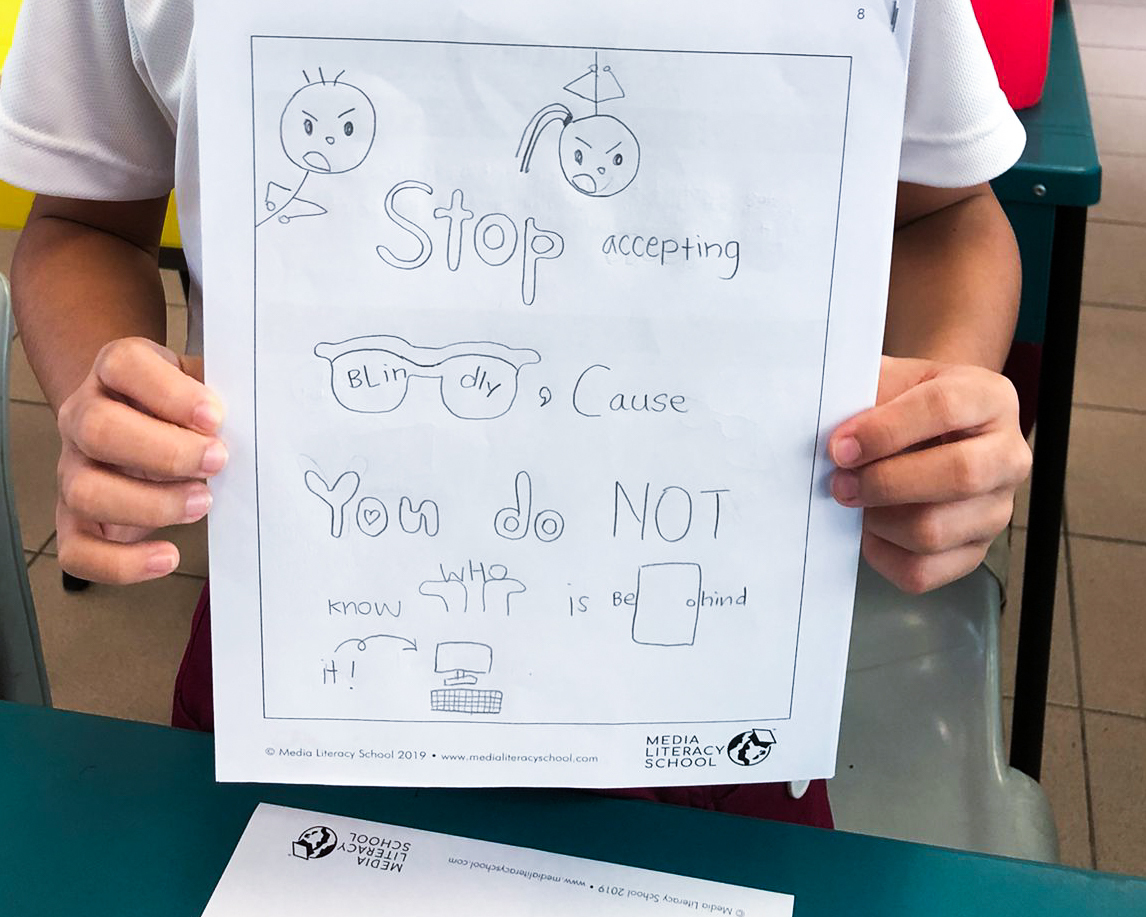 8
Stop accepting
BLindly, Cause
You do NOT
know WHO is BeHind
it!
© Media Literacy School 2019 • www.medialiteracyschool.com
MEDIA
LITERACY
SCHOOL
MEDIA
LITERACY
SCHOOL
© Media Literacy School 2019 • www.medialiteracyschool.com